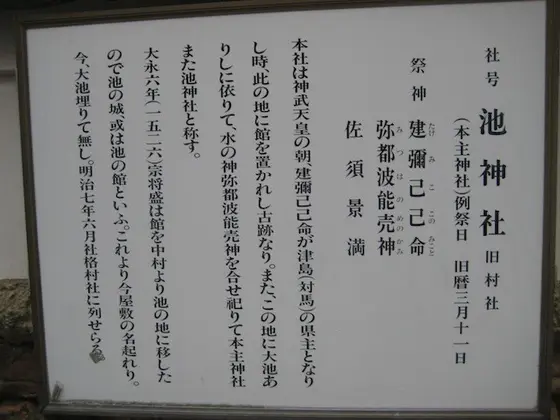 社号 池神社 旧村社
(本主神社)例祭日 旧暦三月十一日
祭神 建彌己己命
たけみここのみこと
弥都波能売神
みつはのめのかみ
佐須景満
本社は神武天皇の朝、建彌己己命が津島(対馬)の県主となり
し時、此の地に館を置かれし古跡なり。また、この地に大池あ
りしに依りて、水の神弥都波能売神を合せ祀りて本主神社
また池神社と称す。
大永六年(一五二六)宗将盛は館を中村より池の地に移した
ので池の城、或は池の館といふ。これより今屋敷の名起れり。
今、大池埋りて無し。明治七年六月社格村社に列せらる。